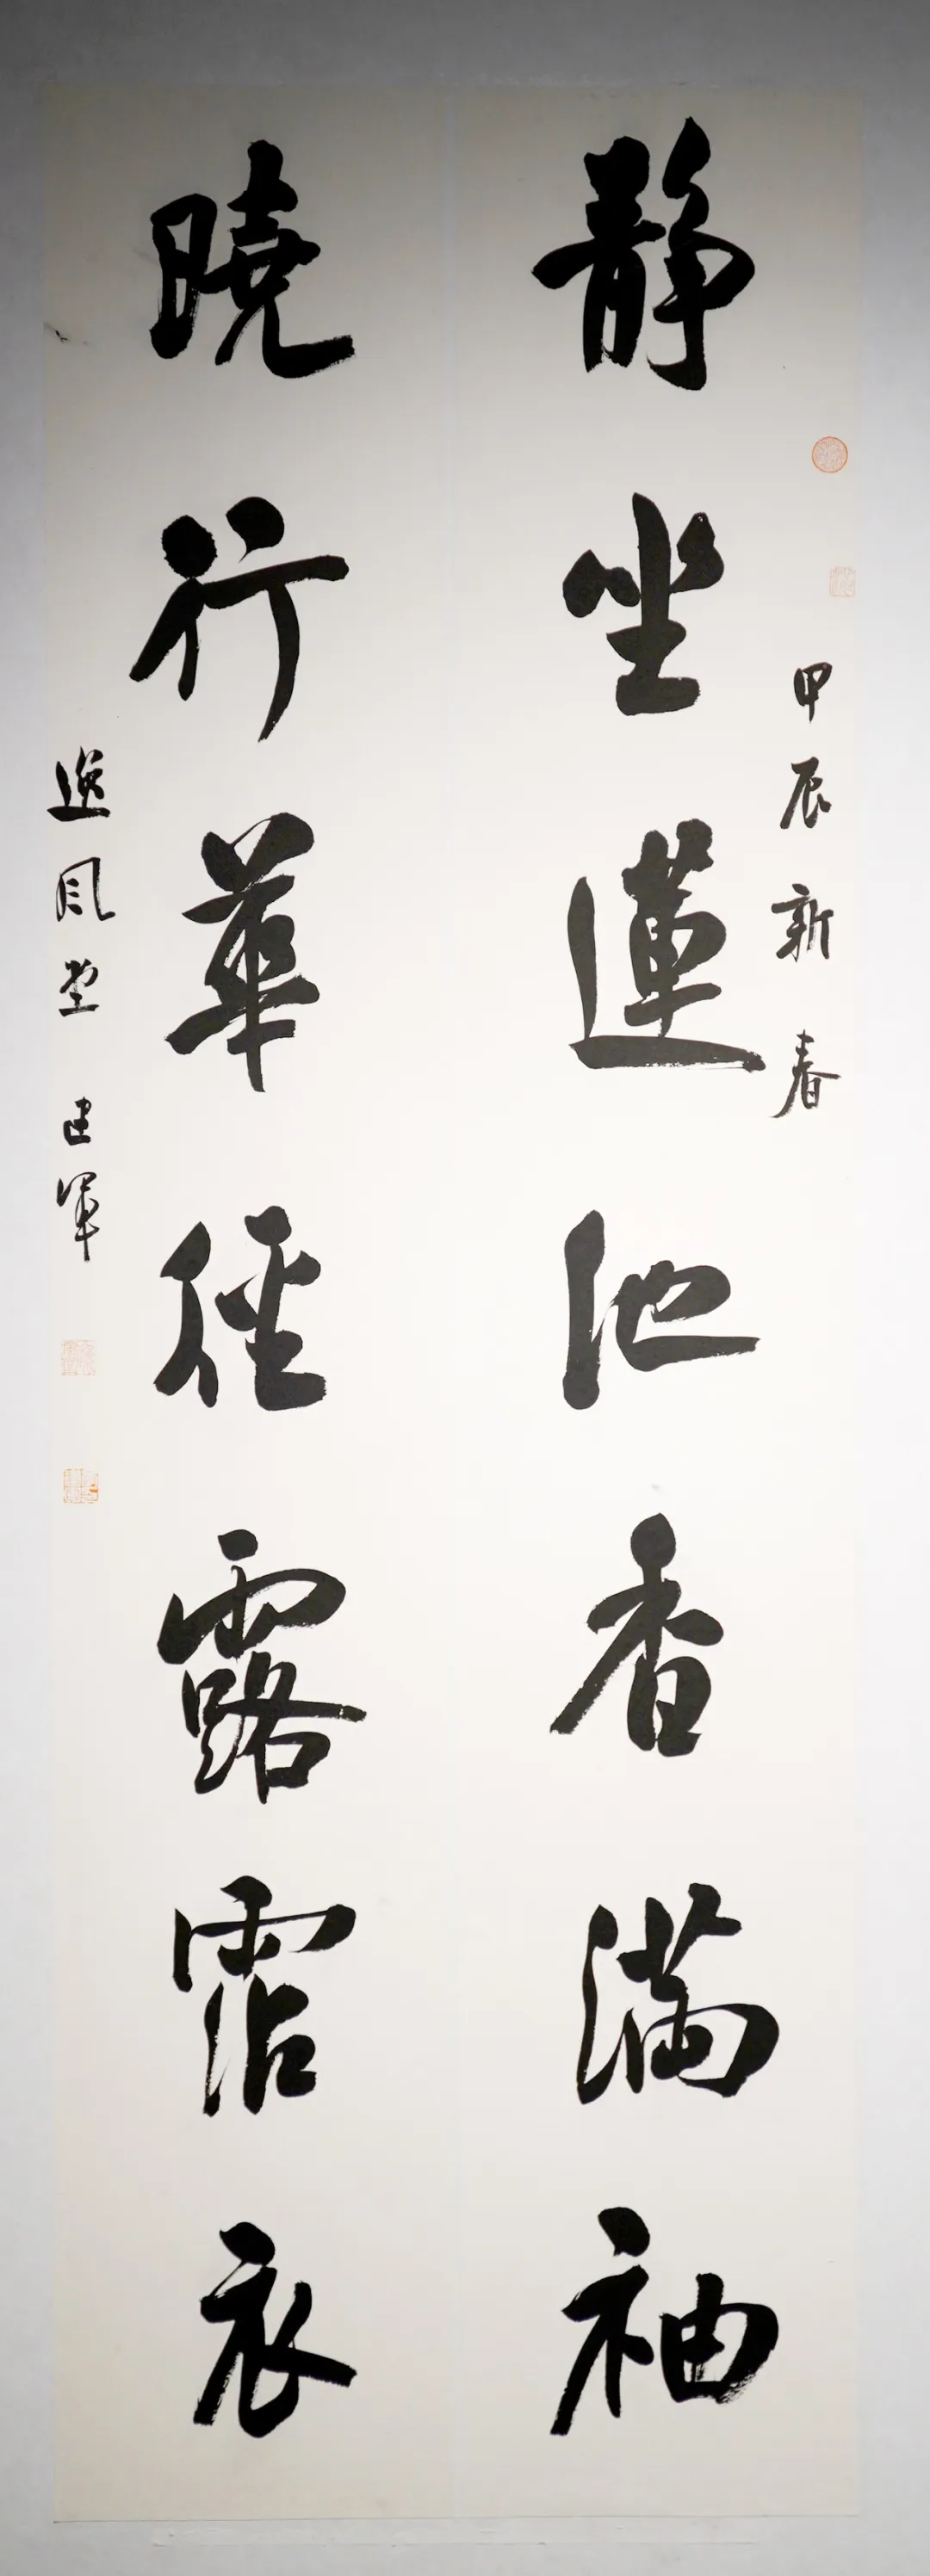 甲辰新春
静坐蓮池香满袖
曉行華徑露霑衣
逸風堂 建軍